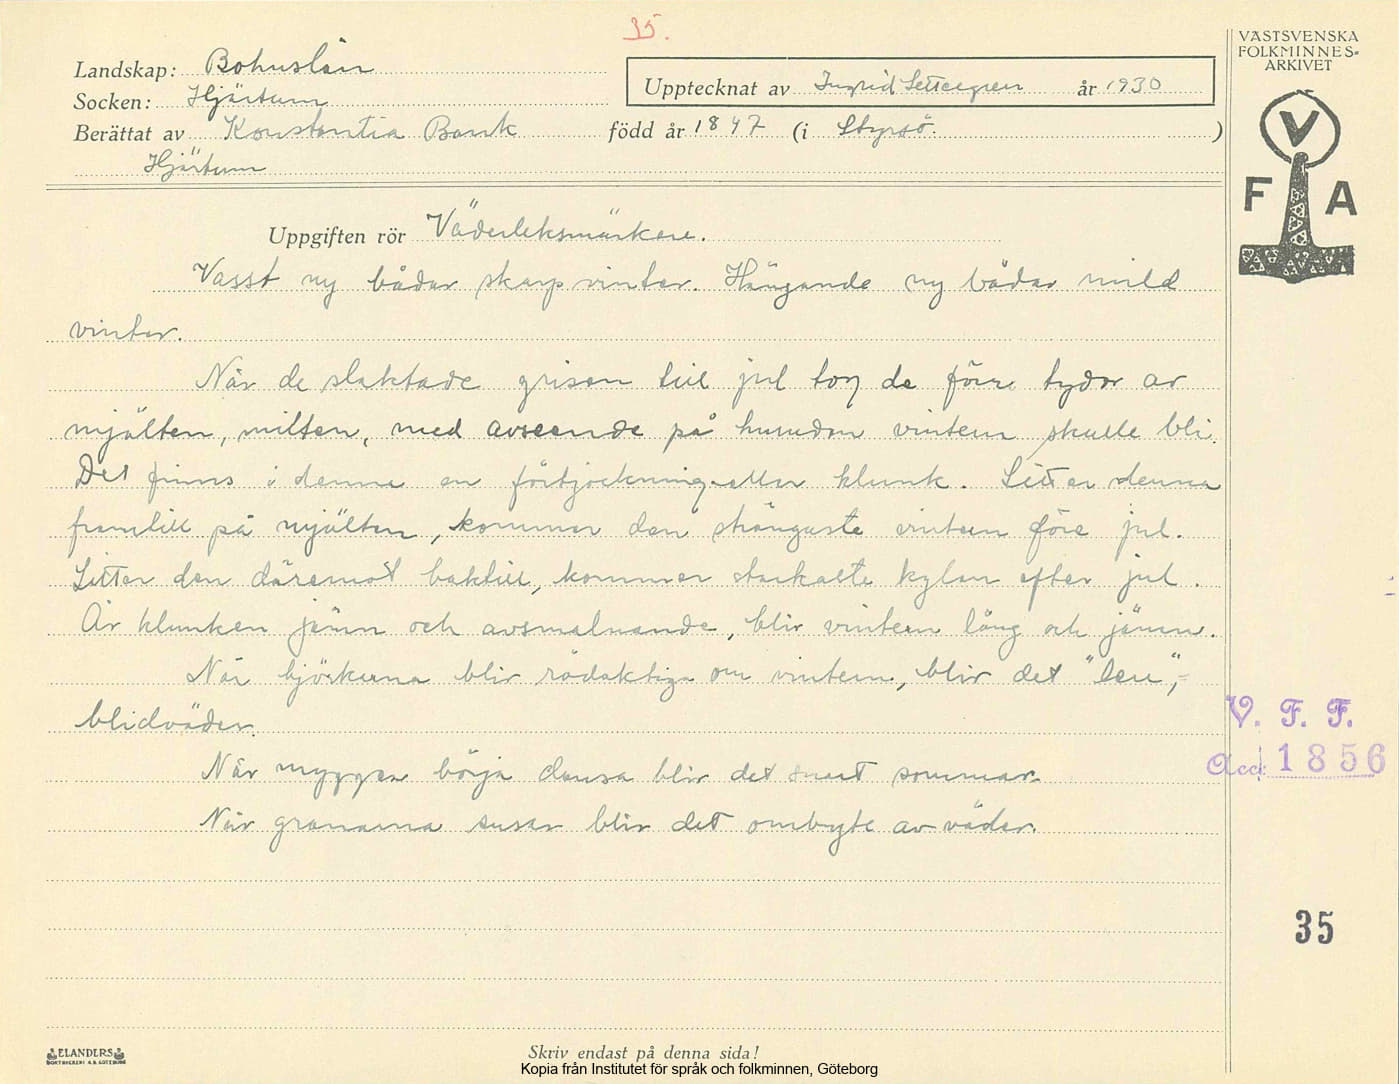 35.
VÄSTSVENSKA
FOLKMINNES-
ARKIVET
V
F A
Landskap: Bohuslän
Socken: Hjärtum
Upptecknat av Ingrid år 1930
Berättat av Konstantia Bank född år 1847 (i Styrsö. )
Hjärtum
Uppgiften rör Väderleksmärken.
Vasst ny bådar skarp vinter. Hängande ny bådar mild
vinter.
När de slaktade grisen till jul tog de förr tydor av
mjälten, milten, med avseende på hurudan vintern skulle bli.
Det finns i denna en förtjockning eller klunk. Sitter denna
framtill på mjälten, kommer den strängaste vintern före jul.
Sitter den däremot baktill, kommer starkaste kylan efter jul.
Är klunken jämn och avsmalnande, blir vintern lång och jämn.
När björkarna blir rödaktiga om vintern, blir det "len", =
blidväder.
När myggen börja dansa blir det snart sommar.
När granarna susar blir det ombyte av väder.
V. F. F.
Acc. 1856
35
ELANDERS
BOKTRYCKERI A.B. GÖTEBORG
Skriv endast på denna sida!
Kopia från Institutet för språk och folkminnen, Göteborg